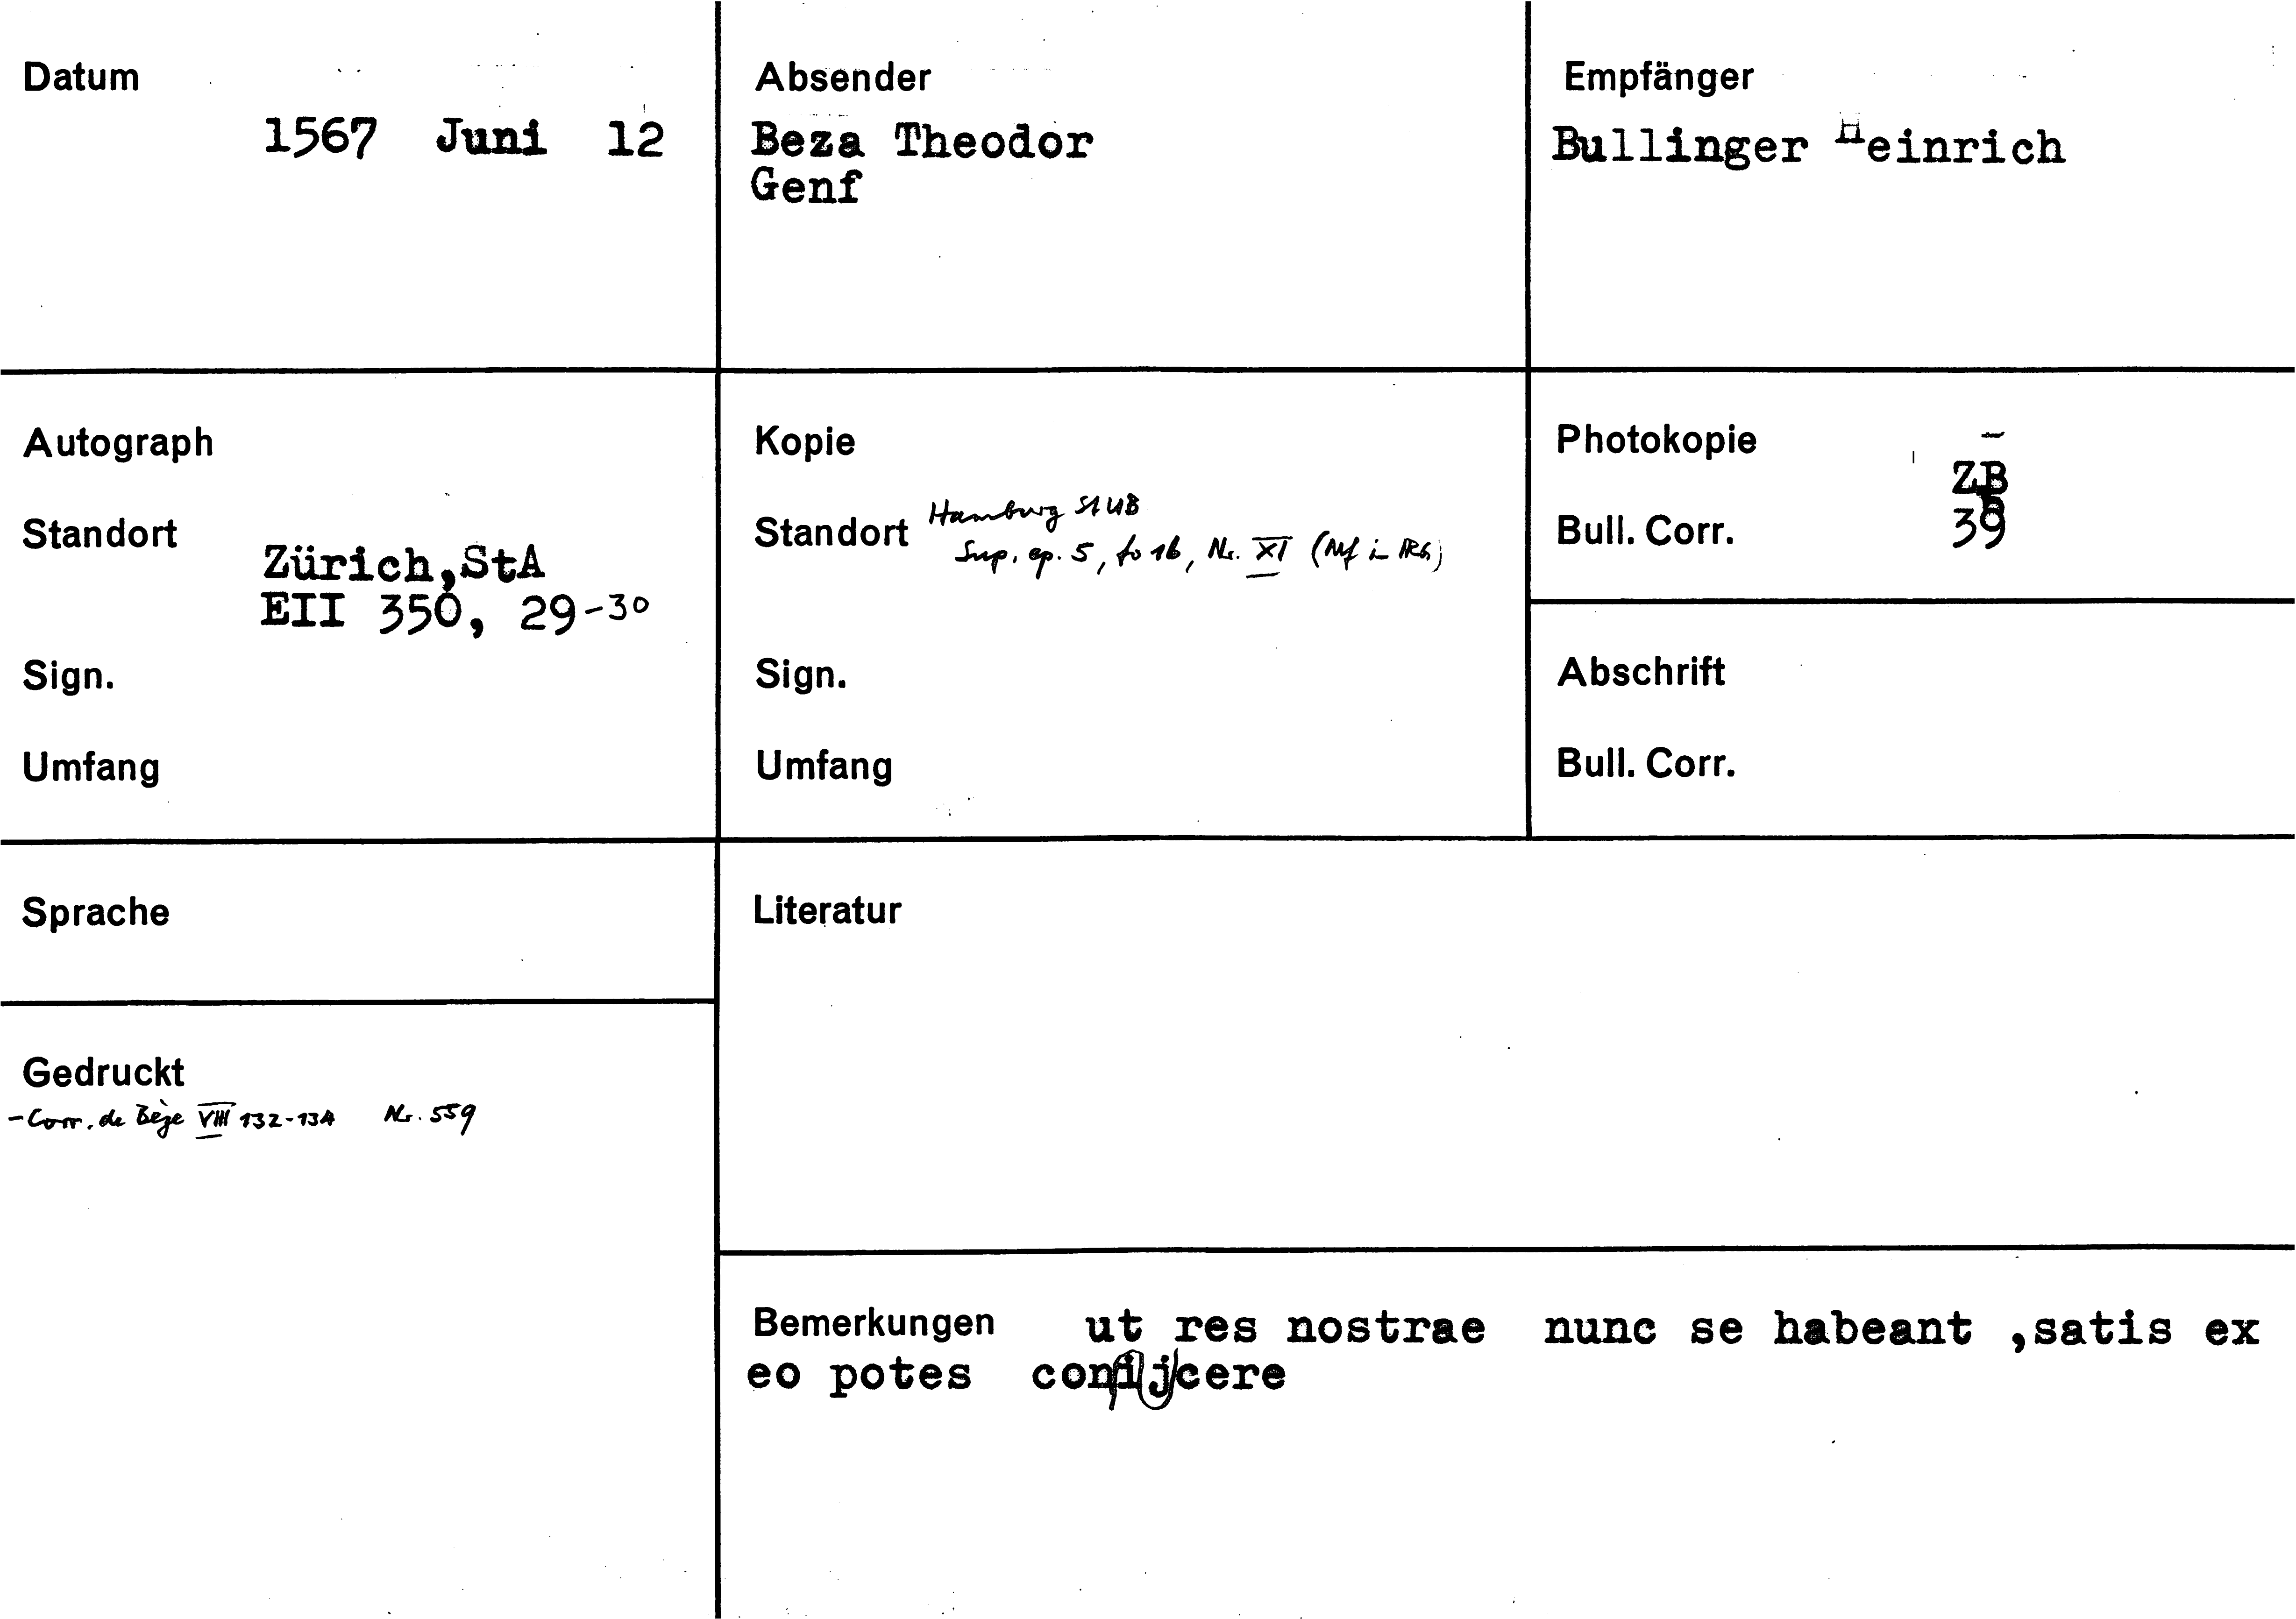 Datum
1567 Juni 12
Absender
Beza Theodor
Genf
Empfänger
Bullinger Heinrich
Autograph
Standort
Zürich,StA
EII 350, 29-30
Sign.
Umfang
Kopie
Standort Hamburg StUB
Sup. ep. 5, fo 16, Nr. XI (Mf i IRG)
Sign.
Umfang
Photokopie
ZB
Bull. Corr. 39
Abschrift
Bull. Corr.
Sprache
Gedruckt
- Corr. de Bèze VIII 132-134 Nr. 559
Literatur
Bemerkungen ut res nostrae nunc se habeant ,satis ex
eo potes conijcere